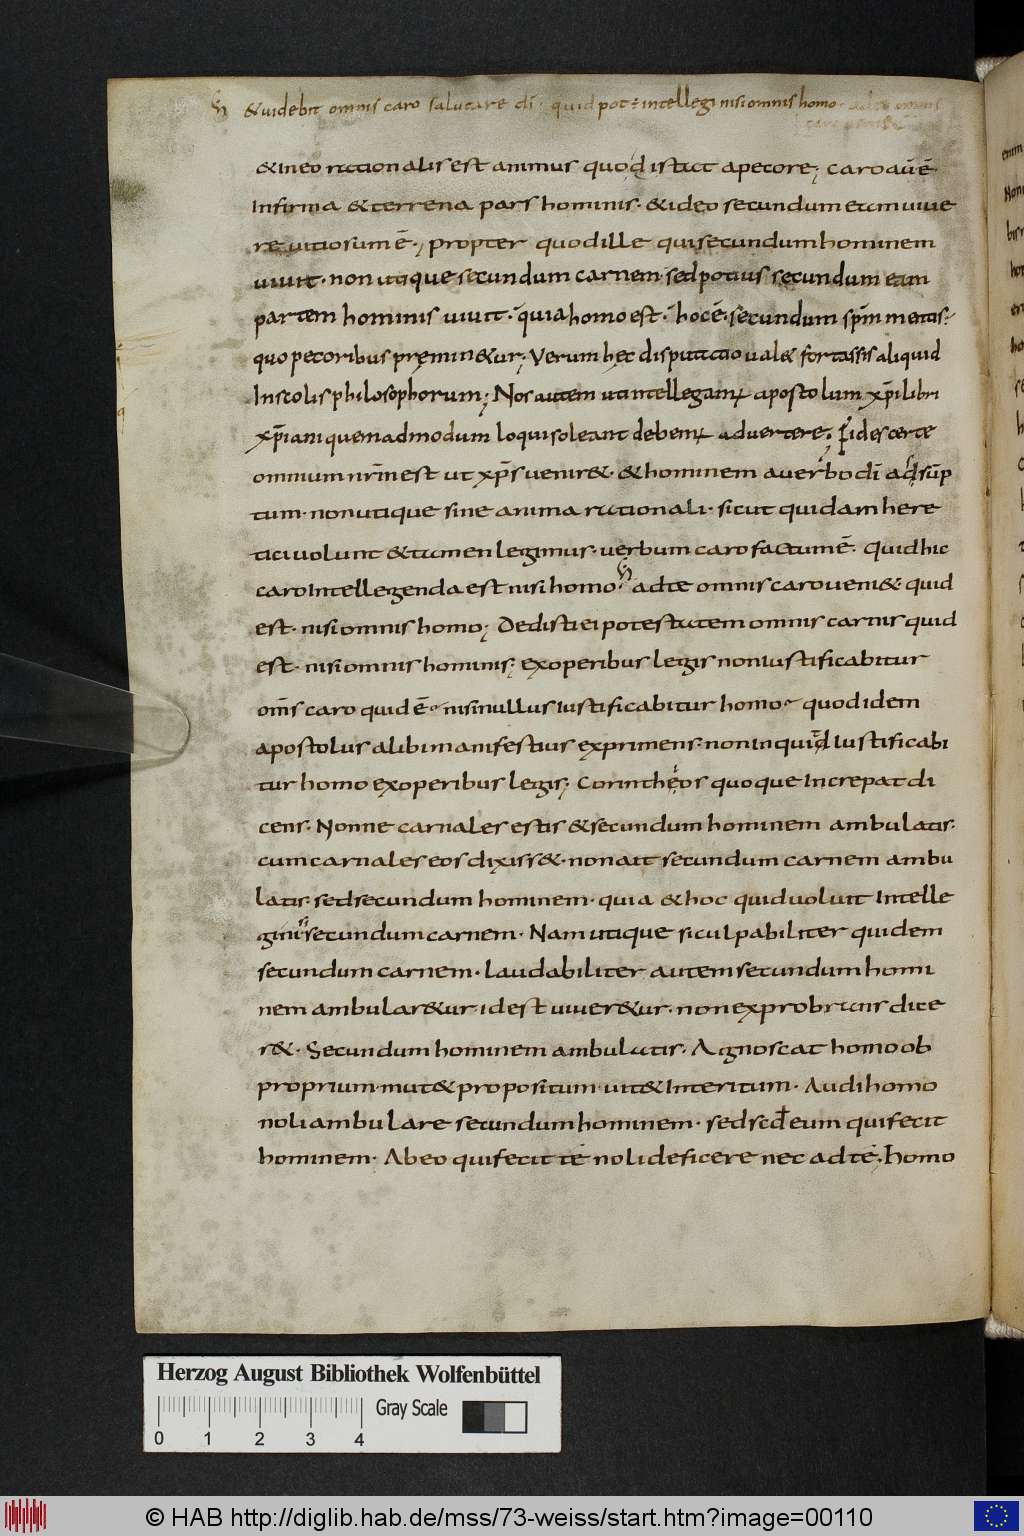 & uidebit omnis caro salutare dī · quid pot÷ intellegi nisi omnis homo ·
& in eo rationalis est animus quod istat a pecore; caro aūē
Infirma & terrena pars hominis · & ideo secundum eam uiue
re uitiosum ē ·; propter quod ille qui secundum hominem
uiuit · non utique secundum carnem · sed potius secundum eam
partem hominis uiuit · quia homo est · hoc ē · secundum sp̄m mentis ·
quo pecoribus pręmin&ur; Verum hęc disputatio ual& fortassis aliquid
In scolis philosophorum; Nos autem ut intellegam᷒ apostolum xp̄i libri
xp̄iani quemadmodum loqui soleant debem᷒ aduertere; Fides certe
omnium nr̄m est ut xp̄s uenir& · & hominem a uerbo dī adsūp
tum · non utique sine anima rationali · sicut quidam here
tici uolunt & tamen legimus · uerbum caro factum ē · Quid hic
caro Intellegenda est nisi homo · ad te omnis caro ueni& · quid
est · nisi omnis homo; Dedisti ei potestatem omnis carnis quid
est · nisi omnis hominis; ex operibus legis non Iustificabitur
om̄s caro quid ē · nisi nullus Iustificabitur homo · quod idem
apostolus alibi manifestius exprimens · non inquid Iustificabi
tur homo ex operibus legis; Corintheos quoque Increpat di
cens · Nonne carnales estis & secundum hominem ambulatis ·
cum carnales eos dixiss& · non ait secundum carnem ambu
latis · sed secundum hominem · quia & hoc quid uoluit Intelle
gi nisi secundum carnem · Nam utique si culpabiliter quidem
secundum carnem · laudabiliter autem secundum homi
nem ambular&ur id est uiuer&ur · non exprobrans dice
r& · Secundum hominem ambulatis · Agnoscat homo ob
proprium · mut& propositum · uit& Interitum · Audi homo
noli ambulare secundum hominem · sed scd̄ eum qui fecit
hominem · Ab eo qui fecit te noli deficere nec ad te · homo
Herzog August Bibliothek Wolfenbüttel
Gray Scale
0 1 2 3 4
© HAB http://diglib.hab.de/mss/73-weiss/start.htm?image=00110